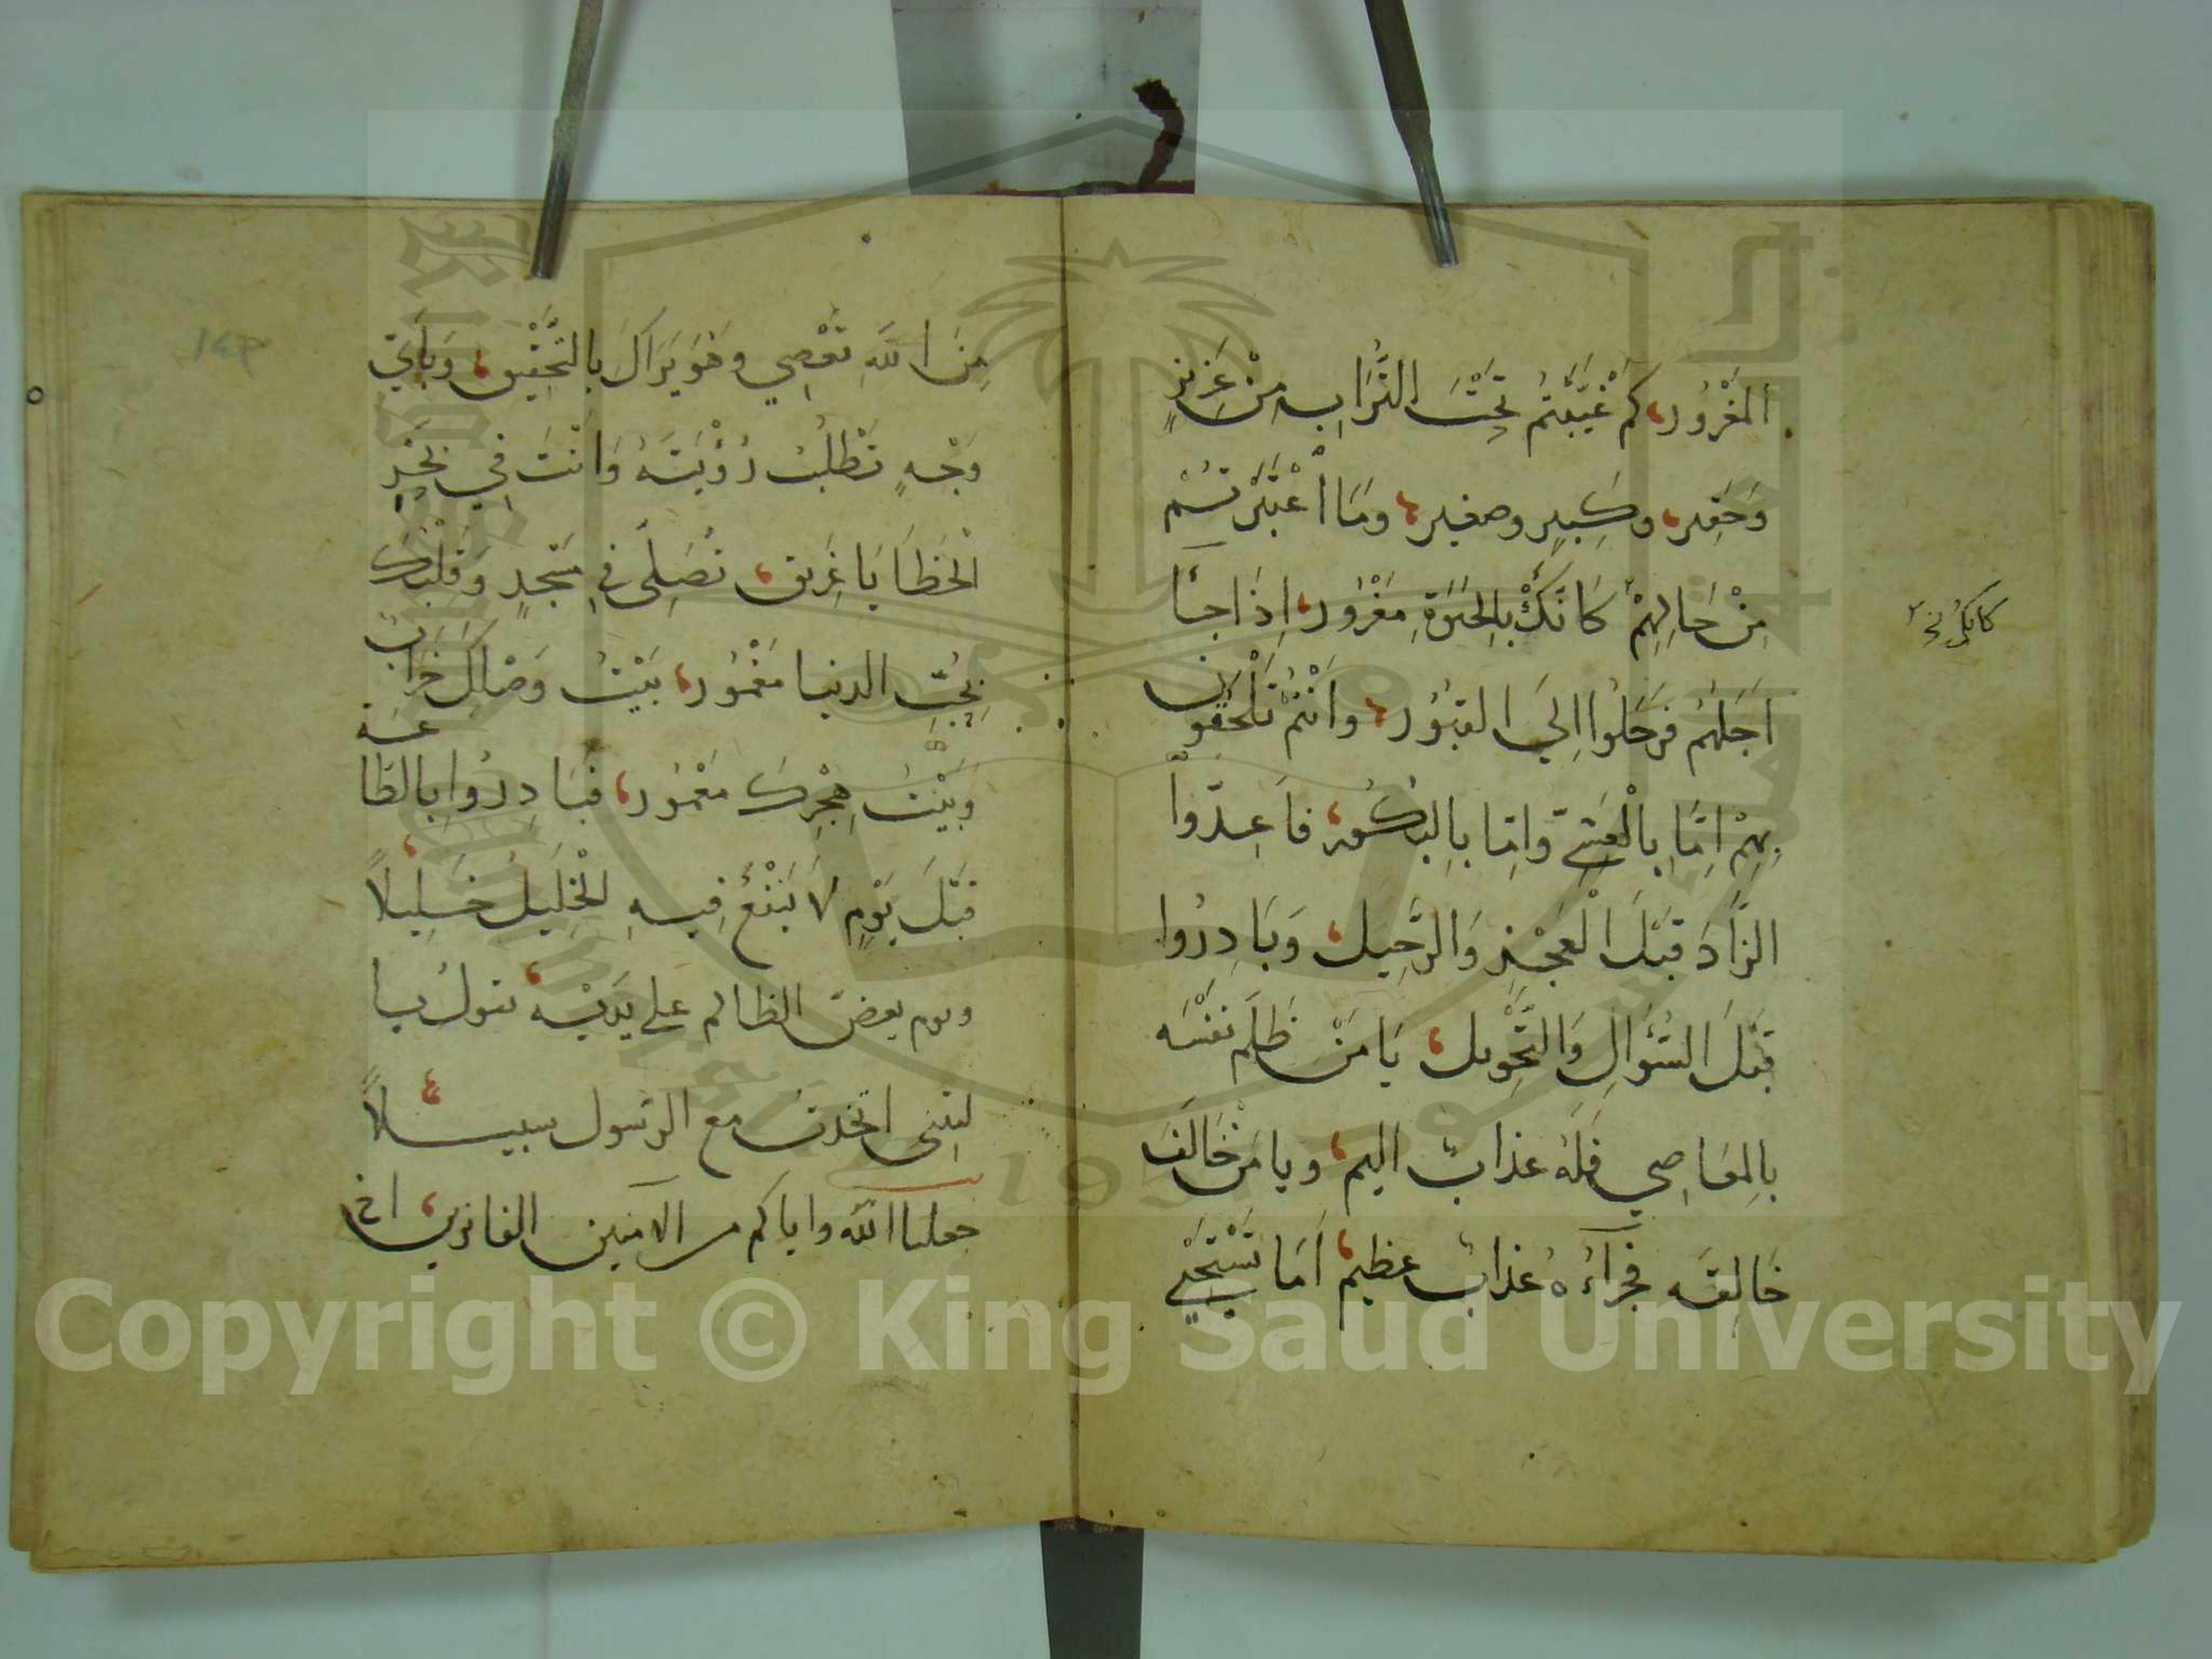 المَغْرُور، كَمْ غَيَّبْتُمْ تَحْتَ التُّرَابِ مِنْ عَزِيزٍ
وَحَقِير، وكَبِيرٍ وصغير، وَمَا اْعْتَبَرْتُمْ
مِنْ حَالِهِمْ كَانَّكُمْ بِالحَيَوٰةِ مَغْرُور، اِذَا جَآءَ
اَجَلُهُم فَرَحَلُوا اِلَي القبُوُر، وَاَنْتُمْ تَلْحَقُون
بِهِمْ اِمَّا بِالْعَشِيّ وَاِمَّا بِالبُكُور، فَاَعِدّوا
الزَّادَ قَبْلَ الْعَجْزِ وَالرَّحِيل، وَبَادِرُوا
قَبْلَ السُّؤَالِ وَالتَّحْوِيل، يَا مَنْ ظَلَمَ نَفْسَه
بِالمعَاصِي فَلَهُ عذابٌ اليم، ويا مَنْ خَالَفَ
خَالِقَه فجزآءُهُ عذابٌ عظيم، اَمَا تَسْتَحْيِي
كانكم نخ
مِنَ اللّٰهِ تَعْصِي وَهُوَ يَرَاكَ بِالتَّحْقِيق، وَبِاَيّ
وَجْهٍ تَطْلُبُ رُؤْيَتَهُ وَاَنْتَ فِي بَحْرِ
الْخَطَايَا غَرِيق، تُصَلِّى فِي مَسْجِدٍ وَقَلْبُكَ
بِحُبِّ الدنيا مَغْمُور، بَيْتُ وَصْلِكَ خَرَابٌ
وَبَيْتُ هِجْرِكَ مَعْمُور، فَبَادِرُوا بِالطَّاعة
قَبْلَ يَوْمٍ لَا يَنْفَعُ فِيهِ الْخَلِيلُ خَلِيلًا،
ويوم يعضّ الظالم على يديه، يقولُ يا
ليتنى اتخذت مع الرّسول سبيلاً
جعلنا اللّٰه واياكم من الآمنين الفائزين، الخ
Copyright © King Saud University